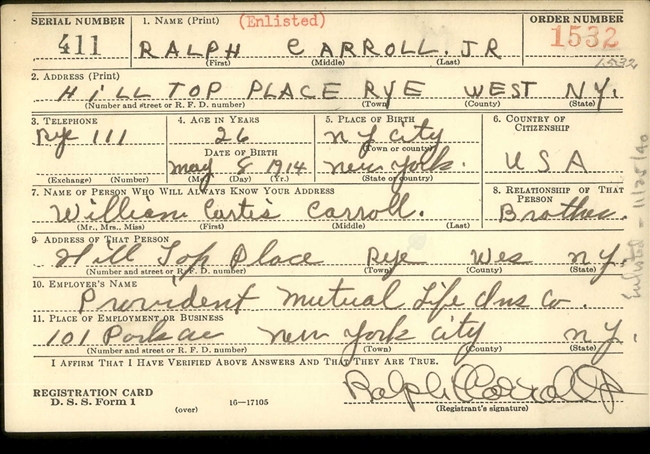 SERIAL NUMBER 1. NAME (Print) (Enlisted) ORDER NUMBER
411 RALPH CARROLL. JR 1532
(First) (Middle) (Last) 1532
2. ADDRESS (Print)
HILL TOP PLACE RYE WEST NY.
(Number and street or R. F. D. number) (Town) (County) (State)
3. TELEPHONE 4. AGE IN YEARS 5. PLACE OF BIRTH 6. COUNTRY OF CITIZENSHIP
Rye 111 26 N Y City
DATE OF BIRTH (Town or county)
May 8 1914 New York. USA
(Exchange) (Number) (Mo.) (Day) (Yr.) (State or country)
7. NAME OF PERSON WHO WILL ALWAYS KNOW YOUR ADDRESS 8. RELATIONSHIP OF THAT PERSON
William Curtis Carroll. Brother.
(Mr., Mrs., Miss) (First) (Middle) (Last)
9. ADDRESS OF THAT PERSON
Hill Top Place Rye Wes N.Y.
(Number and street or R. F. D. number) (Town) (County) (State)
10. EMPLOYER'S NAME
Provident Mutual Life Ins Co.
11. PLACE OF EMPLOYMENT OR BUSINESS
101 Park av New York City N.Y.
(Number and street or R. F. D. number) (Town) (County) (State)
I AFFIRM THAT I HAVE VERIFIED ABOVE ANSWERS AND THAT THEY ARE TRUE.
Ralph Carroll Jr
REGISTRATION CARD
D. S. S. Form 1 (over) 16—17105 (Registrant's signature)
Enlisted - 11/25/40